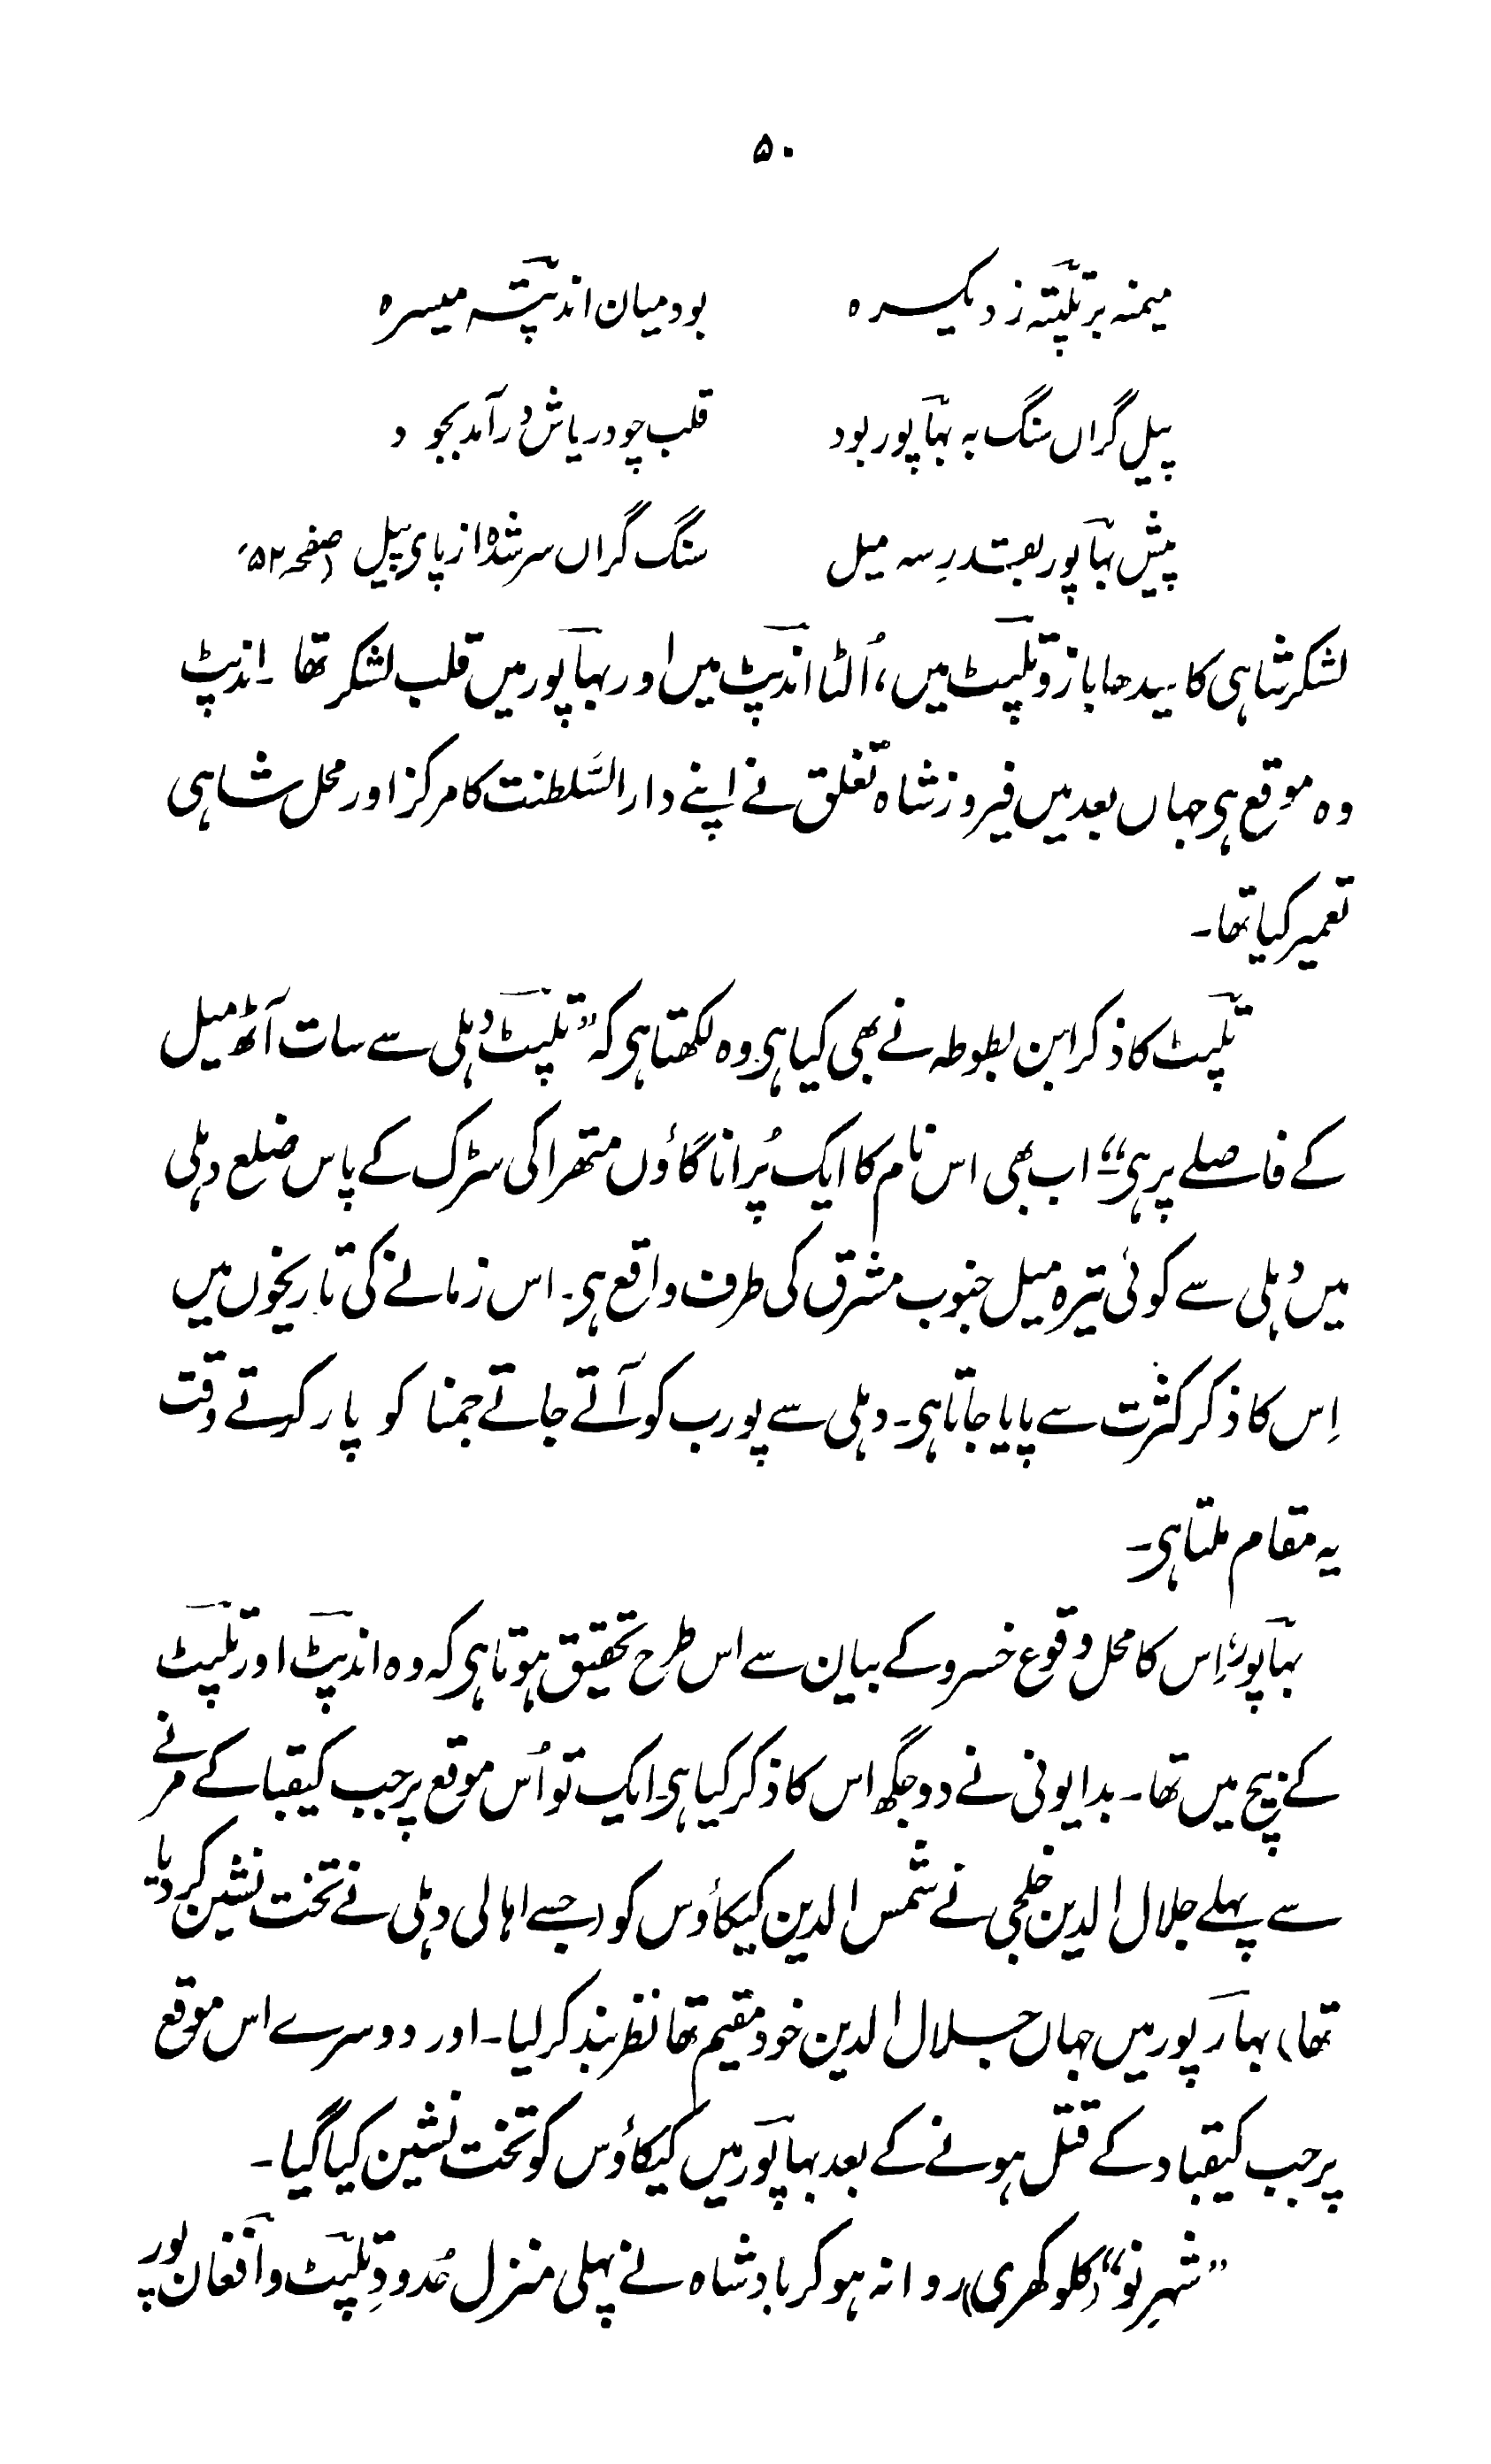 ۵۰
میمنہ بر تلپتہ زد یکسرہ بود میان اندپتہ میسرہ
پیل گراں سنگ بہ بہاپور بود قلب چو دریاش درآمد بجود
پیش بہاپور بقدرِ سہ میل سنگ گراں سرشدہ از پای پیل (صفحہ ۵۲)
لشکر شاہی کا سیدھا بازو تلپٹ میں، اُلٹا اندپٹ میں اور بہاپور میں قلب لشکر تھا۔ اندپٹ
وہ موقع ہی جہاں بعد میں فیروز شاہ تغلق نے اپنے دارالسَّلطنت کا مرکز اور محل شاہی
تعمیر کیا تھا۔
تلپٹ کا ذکر ابن بطوطہ نے بھی کیا ہی۔ وہ لکھتا ہی کہ "تلپٹ دہلی سے سات آٹھ میل
کے فاصلے پر ہی"۔ اب بھی اس نام کا ایک پُرانا گاؤں متھرا کی سڑک کے پاس ضلع دہلی
میں دہلی سے کوئی تیرہ میل جنوب مشرق کی طرف واقع ہی۔ اس زمانے کی تاریخوں میں
اِس کا ذکر کثرت سے پایا جاتا ہی۔ دہلی سے پورب کو آتے جاتے جمنا کو پار کرتے وقت
یہ مقام ملتا ہی۔
بہاپور، اِس کا محل وقوع خسرو کے بیان سے اس طرح تحقیق ہوتا ہی کہ وہ اندپٹ اور تلپٹ
کے بیچ میں تھا۔ بدایونی نے دو جگھ اس کا ذکر کیا ہی۔ ایک تو اُس موقع پر جب کیقبا کے مرنے
سے پہلے جلال الدین خلجی نے شمس الدین کیکاؤس کو (جسے اہالی دہلی نے تخت نشین کردیا
تھا) بہارپور میں جہاں جلال الدین خود مقیم تھا نظر بند کر لیا۔ اور دوسرے اس موقع
پر جب کیقباد کے قتل ہونے کے بعد بہاپور میں کیکاؤس کو تخت نشین کیا گیا۔
"شہرِ نو" (کلوکھری) روانہ ہو کر بادشاہ نے پہلی منزل حُدودِ تلپٹ و افغان پور